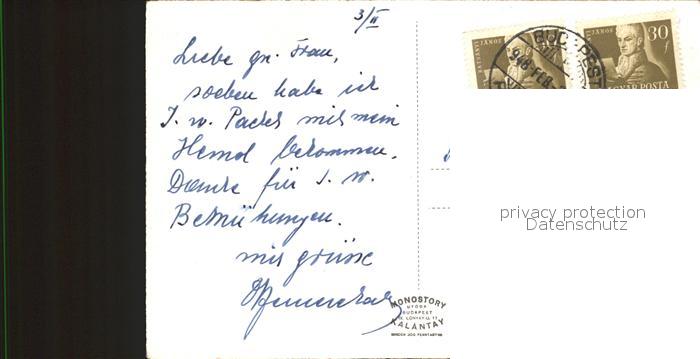 3/II
Liebe gn. Frau,
soeben habe ich
I. w. Packet mit mein
Hemd bekommen.
Danke für I. w.
Bemühungen.
mit grüsse
BATSÁNYI JÁNOS
30 f
MAGYAR POSTA
BUDAPEST
948 FEB
privacy protection
Datenschutz
MONOSTORY
UTÓDA
BUDAPEST
IX. LÓNYAY-U. 11
KALANTAY
MINDEN JOG FENNTARTVA